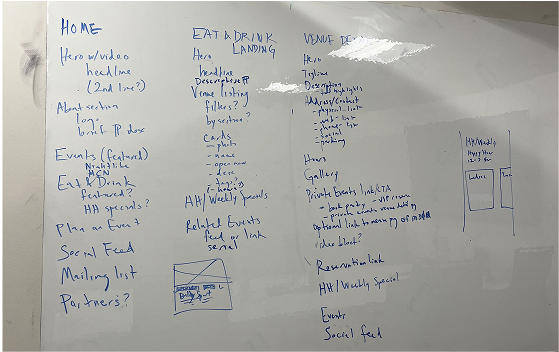 HOME
Hero w/video
headline
(2nd line?)
About section
logo
brief
Events (featured)
Eat & Drink
featured?
HH specials?
Plan an Event
Social Feed
Mailing list
Partners?
EAT & DRINK
LANDING
Hero
headline
Descriptive
Venue listing
filters?
by section?
Cards
- photo
- name
- open now
- desc
HH/Weekly Specials
Related Events
feed or link
serial
VENUE
Hero
Tagline
Description
highlights
Address/Contact
- physical
- web - link
- phone - link
- social
- parking
Hours
Gallery
Private Events link/CTA
- book party
- private events
Optional link to menu
video block?
Reservation link
HH/Weekly Special
Events
Social feed
HH/Weekly